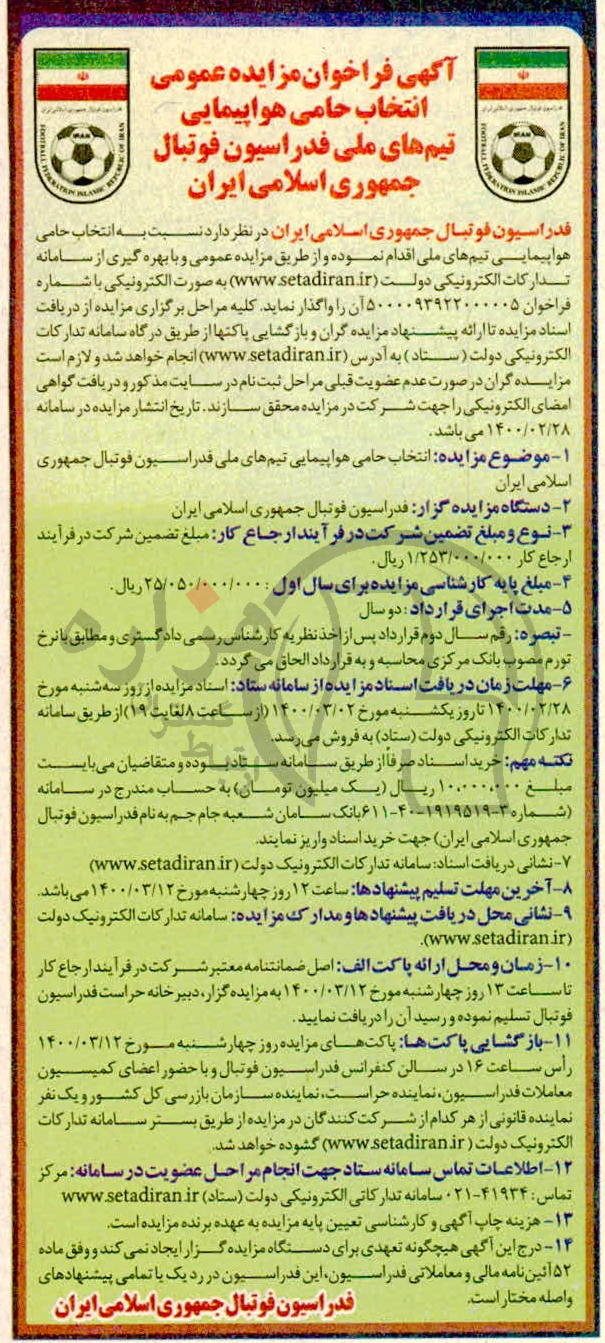 آگهی فراخوان مزایده عمومی
انتخاب حامی هواپیمایی
تیم‌های ملی فدراسیون فوتبال
جمهوری اسلامی ایران
فدراسیون فوتبال جمهوری اسلامی ایران در نظر دارد نسبت به انتخاب حامی
هواپیمایی تیم‌های ملی اقدام نموده و از طریق مزایده عمومی و با بهره گیری از سامانه
تدارکات الکترونیکی دولت (www.setadiran.ir) به صورت الکترونیکی با شماره
فراخوان ۵۰۰۰۰۹۳۹۲۲۰۰۰۰۰۵ آن را واگذار نماید. کلیه مراحل برگزاری مزایده از دریافت
اسناد مزایده تا ارائه پیشنهاد مزایده گران و بازگشایی پاکتها از طریق درگاه سامانه تدارکات
الکترونیکی دولت (ستاد) به آدرس (www.setadiran.ir) انجام خواهد شد و لازم است
مزایده گران در صورت عدم عضویت قبلی مراحل ثبت نام در سایت مذکور و دریافت گواهی
امضای الکترونیکی را جهت شرکت در مزایده محقق سازند. تاریخ انتشار مزایده در سامانه
۱۴۰۰/۰۲/۲۸ می باشد.
۱-موضوع مزایده: انتخاب حامی هواپیمایی تیم‌های ملی فدراسیون فوتبال جمهوری
اسلامی ایران
۲-دستگاه مزایده گزار: فدراسیون فوتبال جمهوری اسلامی ایران
۳-نوع و مبلغ تضمین شرکت در فرآیند ارجاع کار: مبلغ تضمین شرکت در فرآیند
ارجاع کار ۱/۲۵۳/۰۰۰/۰۰۰ ریال.
۴-مبلغ پایه کارشناسی مزایده برای سال اول: ۲۵/۰۵۰/۰۰۰/۰۰۰ ریال.
۵-مدت اجرای قرارداد: دو سال
-تبصره: رقم سال دوم قرارداد پس از اخذ نظریه کارشناس رسمی دادگستری و مطابق با نرخ
تورم مصوب بانک مرکزی محاسبه و به قرارداد الحاق می گردد.
۶-مهلت زمان دریافت اسناد مزایده از سامانه ستاد: اسناد مزایده از روز سه شنبه مورخ
۱۴۰۰/۰۲/۲۸ تا روز یکشنبه مورخ ۱۴۰۰/۰۳/۰۲ (از ساعت ۸ لغایت ۱۹) از طریق سامانه
تدارکات الکترونیکی دولت (ستاد) به فروش می‌رسد.
نکته مهم: خرید اسناد صرفاً از طریق سامانه ستاد بوده و متقاضیان می‌بایست
مبلغ ۱۰,۰۰۰,۰۰۰ ریال (یک میلیون تومان) به حساب مندرج در سامانه
(شماره ۳-۱۹۱۹۵۱۹-۴۰-۶۱۱ بانک سامان شعبه جام جم به نام فدراسیون فوتبال
جمهوری اسلامی ایران) جهت خرید اسناد واریز نمایند.
۷-نشانی دریافت اسناد: سامانه تدارکات الکترونیک دولت (www.setadiran.ir)
۸-آخرین مهلت تسلیم پیشنهادها: ساعت ۱۲ روز چهارشنبه مورخ ۱۴۰۰/۰۳/۱۲ می‌باشد.
۹-نشانی محل دریافت پیشنهادها و مدارک مزایده: سامانه تدارکات الکترونیک دولت
(www.setadiran.ir).
۱۰-زمان و محل ارائه پاکت الف: اصل ضمانتنامه معتبر شرکت در فرآیند ارجاع کار
تا ساعت ۱۳ روز چهارشنبه مورخ ۱۴۰۰/۰۳/۱۲ به مزایده گزار، دبیرخانه حراست فدراسیون
فوتبال تسلیم نموده و رسید آن را دریافت نمایید.
۱۱-بازگشایی پاکت‌ها: پاکت‌های مزایده روز چهارشنبه مورخ ۱۴۰۰/۰۳/۱۲
رأس ساعت ۱۶ در سالن کنفرانس فدراسیون فوتبال و با حضور اعضای کمیسیون
معاملات فدراسیون، نماینده حراست، نماینده سازمان بازرسی کل کشور و یک نفر
نماینده قانونی از هر کدام از شرکت کنندگان در مزایده از طریق بستر سامانه تدارکات
الکترونیک دولت (www.setadiran.ir) گشوده خواهد شد.
۱۲-اطلاعات تماس سامانه ستاد جهت انجام مراحل عضویت در سامانه: مرکز
تماس: ۴۱۹۳۴-۰۲۱ سامانه تدارکاتی الکترونیکی دولت (ستاد) www.setadiran.ir
۱۳- هزینه چاپ آگهی و کارشناسی تعیین پایه مزایده به عهده برنده مزایده است.
۱۴-درج این آگهی هیچگونه تعهدی برای دستگاه مزایده گزار ایجاد نمی کند و وفق ماده
۵۲ آئین نامه مالی و معاملاتی فدراسیون، این فدراسیون در رد یک یا تمامی پیشنهادهای
واصله مختار است.
فدراسیون فوتبال جمهوری اسلامی ایران